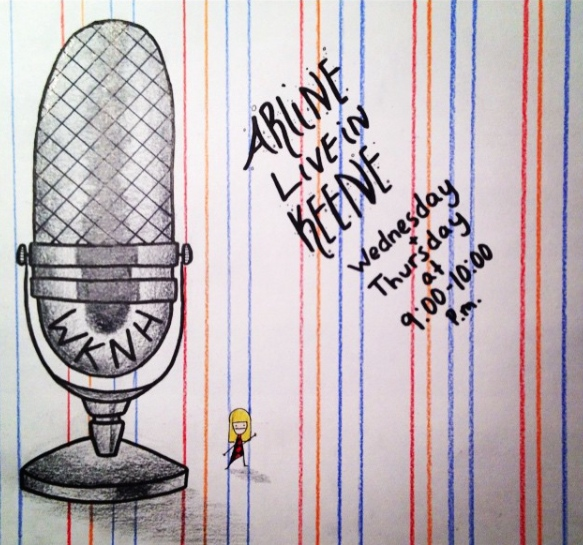 WKNH
ARLINE
LIVE IN
KEENE
Wednesday
+
Thursday
at
9:00-10:00
P.m.